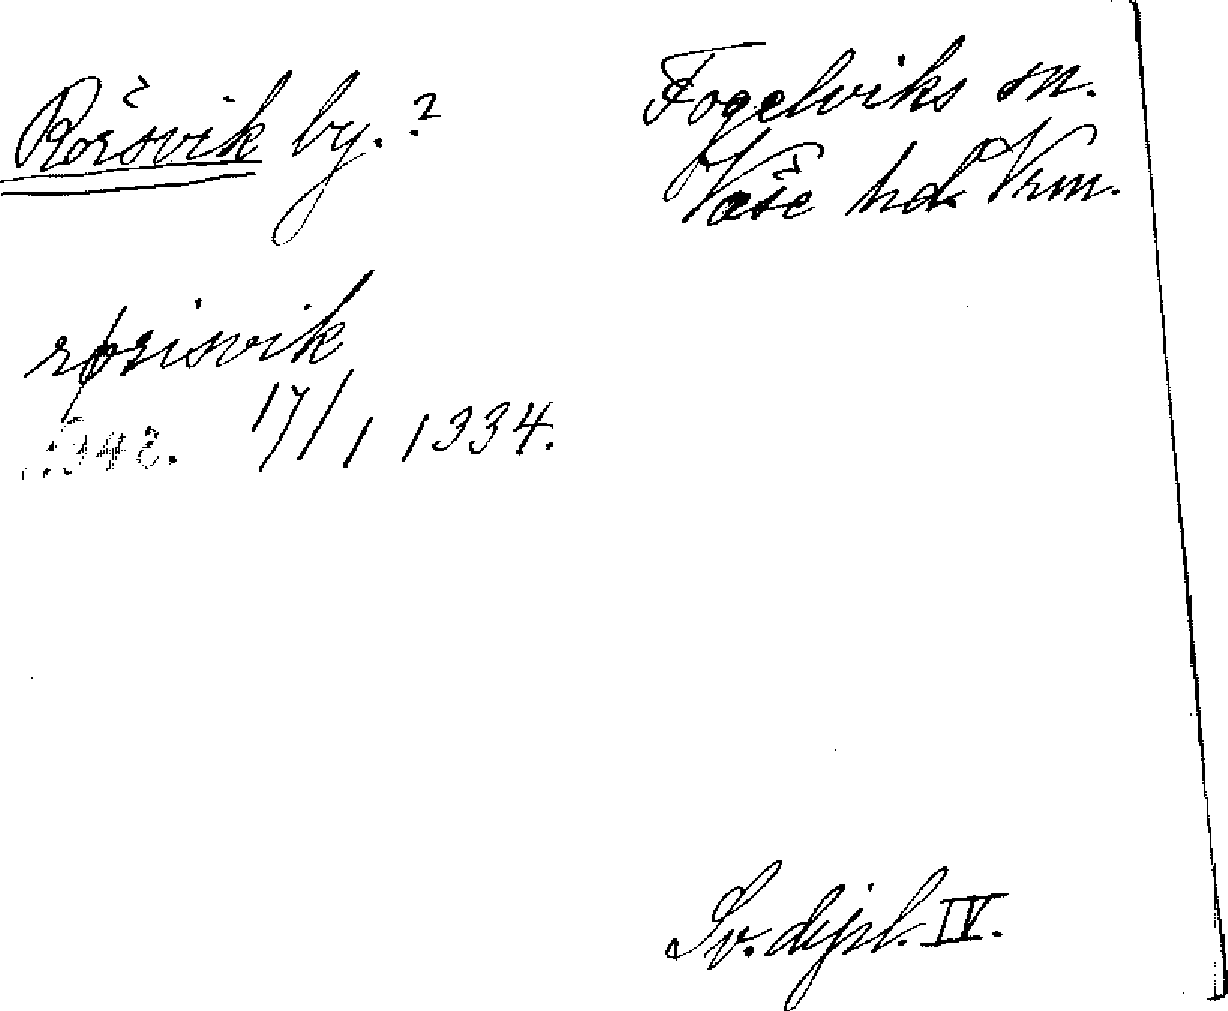 Rörsvik by.?
Fogelviks sn.
Väse hd. Vrm.
rørisvik
17/1 1334.
Sv. dipl. IV.